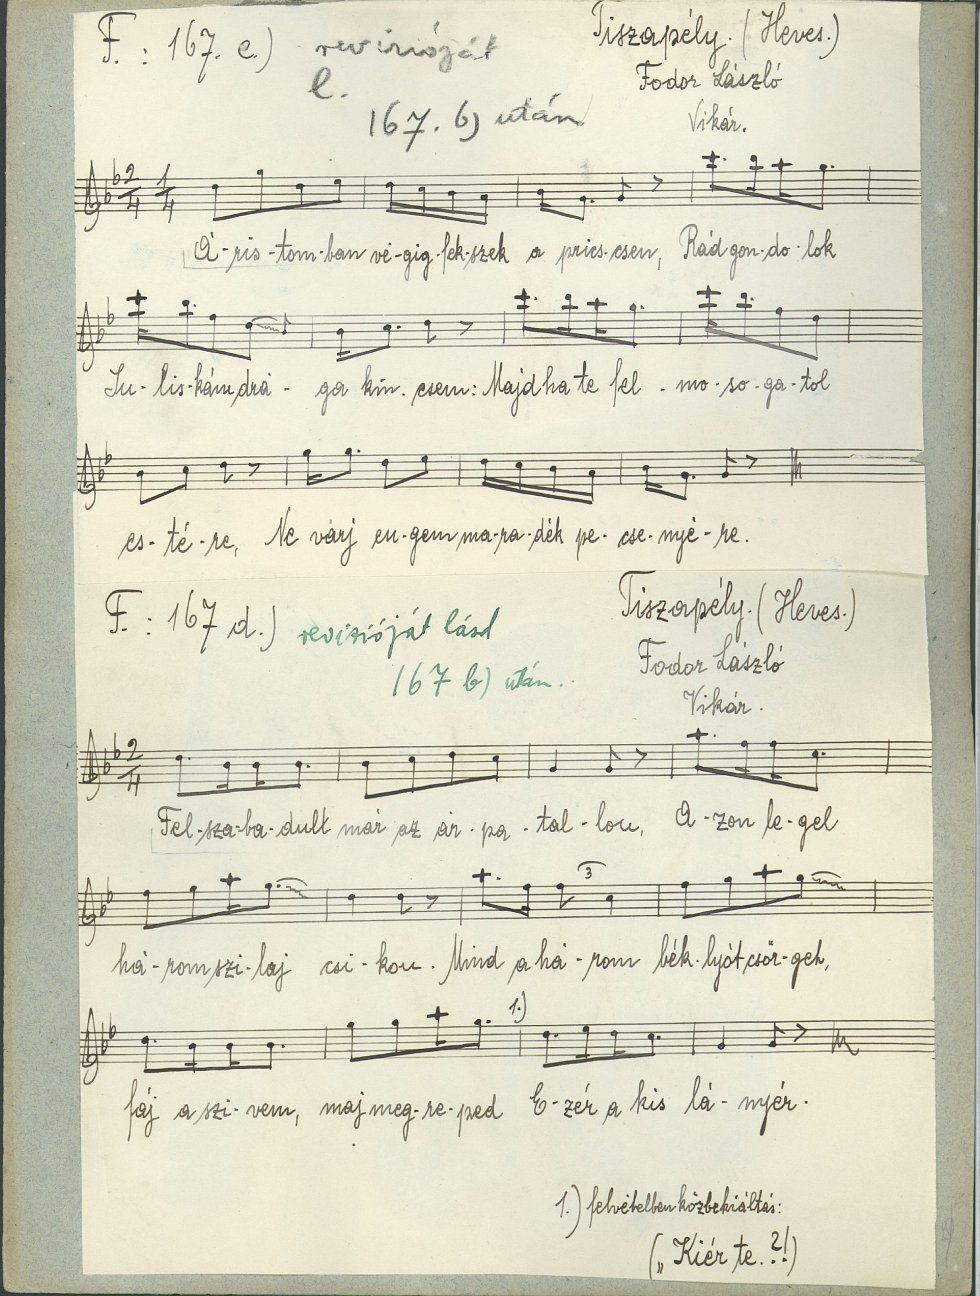 F.: 167. c.) revizióját Tiszapély. (Heves.)
l. Fodor László
167. b) után Vikár.
2/4 1/4
Á-ris-tom-ban vé-gig-fek-szek a prics-csen, Rád gon-do-lok
Ju-lis-kám drá-ga kin-csem: Majd ha te fel-mo-so-ga-tol
es-té-re, Ne várj en-gem ma-ra-dék pe-cse-nyé-re.
F.: 167 d.) revizióját lásd Tiszapély. (Heves.)
167 b) után. Fodor László
Vikár.
2/4
Fel-sza-ba-dult már az ár-pa-tal-lou, A-zon le-gel
3
há-rom szi-laj csi-kou. Mind a há-rom bék-lyót csör-get,
1.)
fáj a szi-vem, maj meg-re-ped E-zér a kis lá-nyér.
1.) felvételben közbekiáltás:
(„Kiér te.?!)